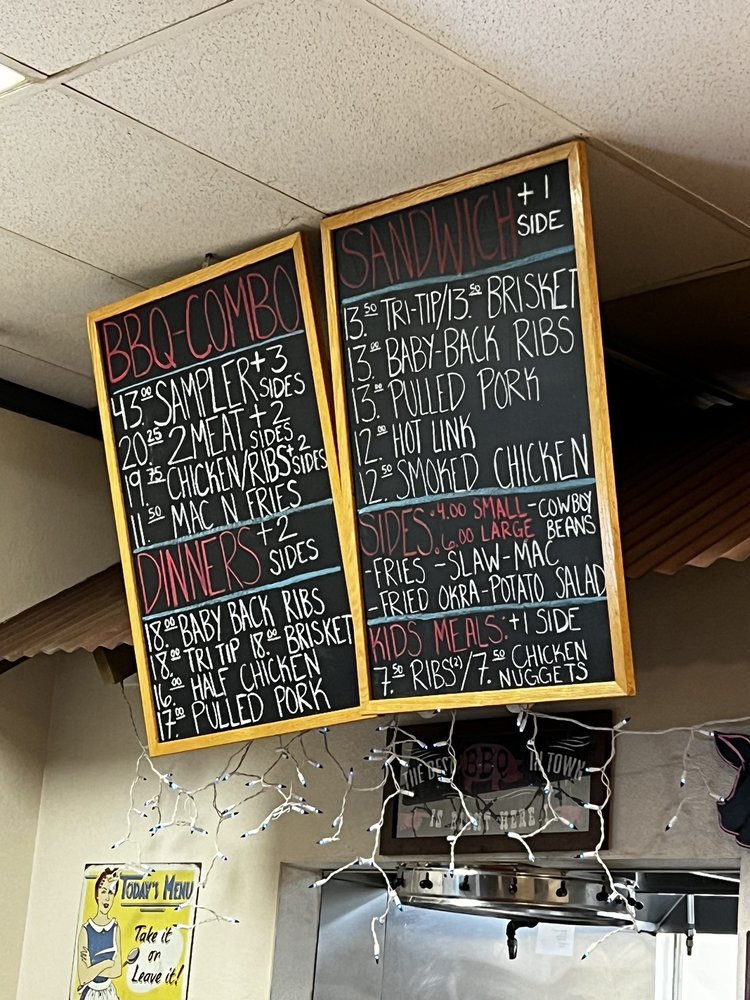 BBQ-COMBO
43.00 SAMPLER +3 SIDES
20.25 2 MEAT +2 SIDES
19.75 CHICKEN/RIBS +2 SIDES
11.50 MAC N FRIES
DINNERS +2 SIDES
18.00 BABY BACK RIBS
18.00 TRI TIP 18.00 BRISKET
16.00 HALF CHICKEN
17.00 PULLED PORK
SANDWICH +1 SIDE
13.50 TRI-TIP/13.50 BRISKET
13.00 BABY-BACK RIBS
13.00 PULLED PORK
12.00 HOT LINK
12.50 SMOKED CHICKEN
SIDES: 4.00 SMALL -COWBOY
6.00 LARGE BEANS
-FRIES -SLAW-MAC
-FRIED OKRA-POTATO SALAD
KIDS MEALS: +1 SIDE
7.50 RIBS(2)/7.50 CHICKEN NUGGETS
THE BEST BBQ IN TOWN
IS RIGHT HERE
TODAY'S MENU
Take it
or
Leave it!